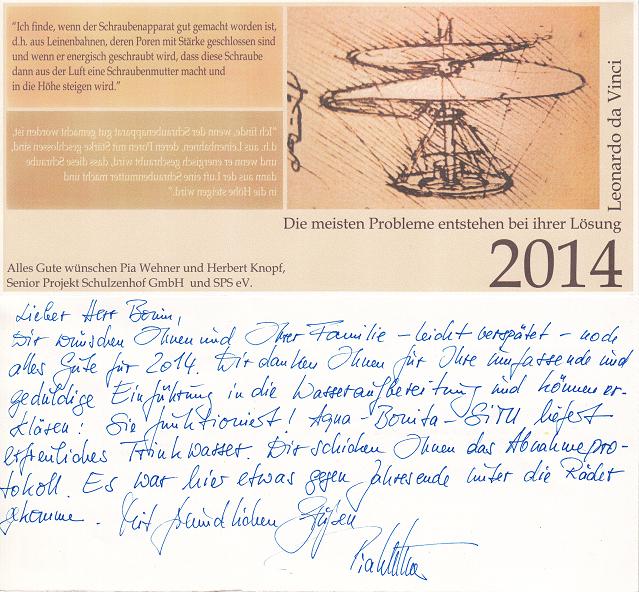 "Ich finde, wenn der Schraubenapparat gut gemacht worden ist,
d.h. aus Leinenbahnen, deren Poren mit Stärke geschlossen sind
und wenn er energisch geschraubt wird, dass diese Schraube
dann aus der Luft eine Schraubenmutter macht und
in die Höhe steigen wird."
"Ich finde, wenn der Schraubenapparat gut gemacht worden ist,
d.h. aus Leinenbahnen, deren Poren mit Stärke geschlossen sind,
und wenn er energisch geschraubt wird, dass diese Schraube
dann aus der Luft eine Schraubenmutter macht und
in die Höhe steigen wird."
Leonardo da Vinci
Die meisten Probleme entstehen bei ihrer Lösung
2014
Alles Gute wünschen Pia Wehner und Herbert Knopf,
Senior Projekt Schulzenhof GmbH und SPS eV.
Lieber Herr Bonin,
Wir wünschen Ihnen und Ihrer Familie – leicht verspätet – noch
alles Gute für 2014. Wir danken Ihnen für Ihre umfassende und
geduldige Einführung in die Wasseraufbereitung und können er-
klären: Sie funktioniert! Aqua-Bonita- liefert
erfreuliches Trinkwasser. Wir schicken Ihnen das Abnahmepro-
tokoll. Es war hier etwas gegen Jahresende unter die Räder
gekomme. Mit freundlichen Grüßen